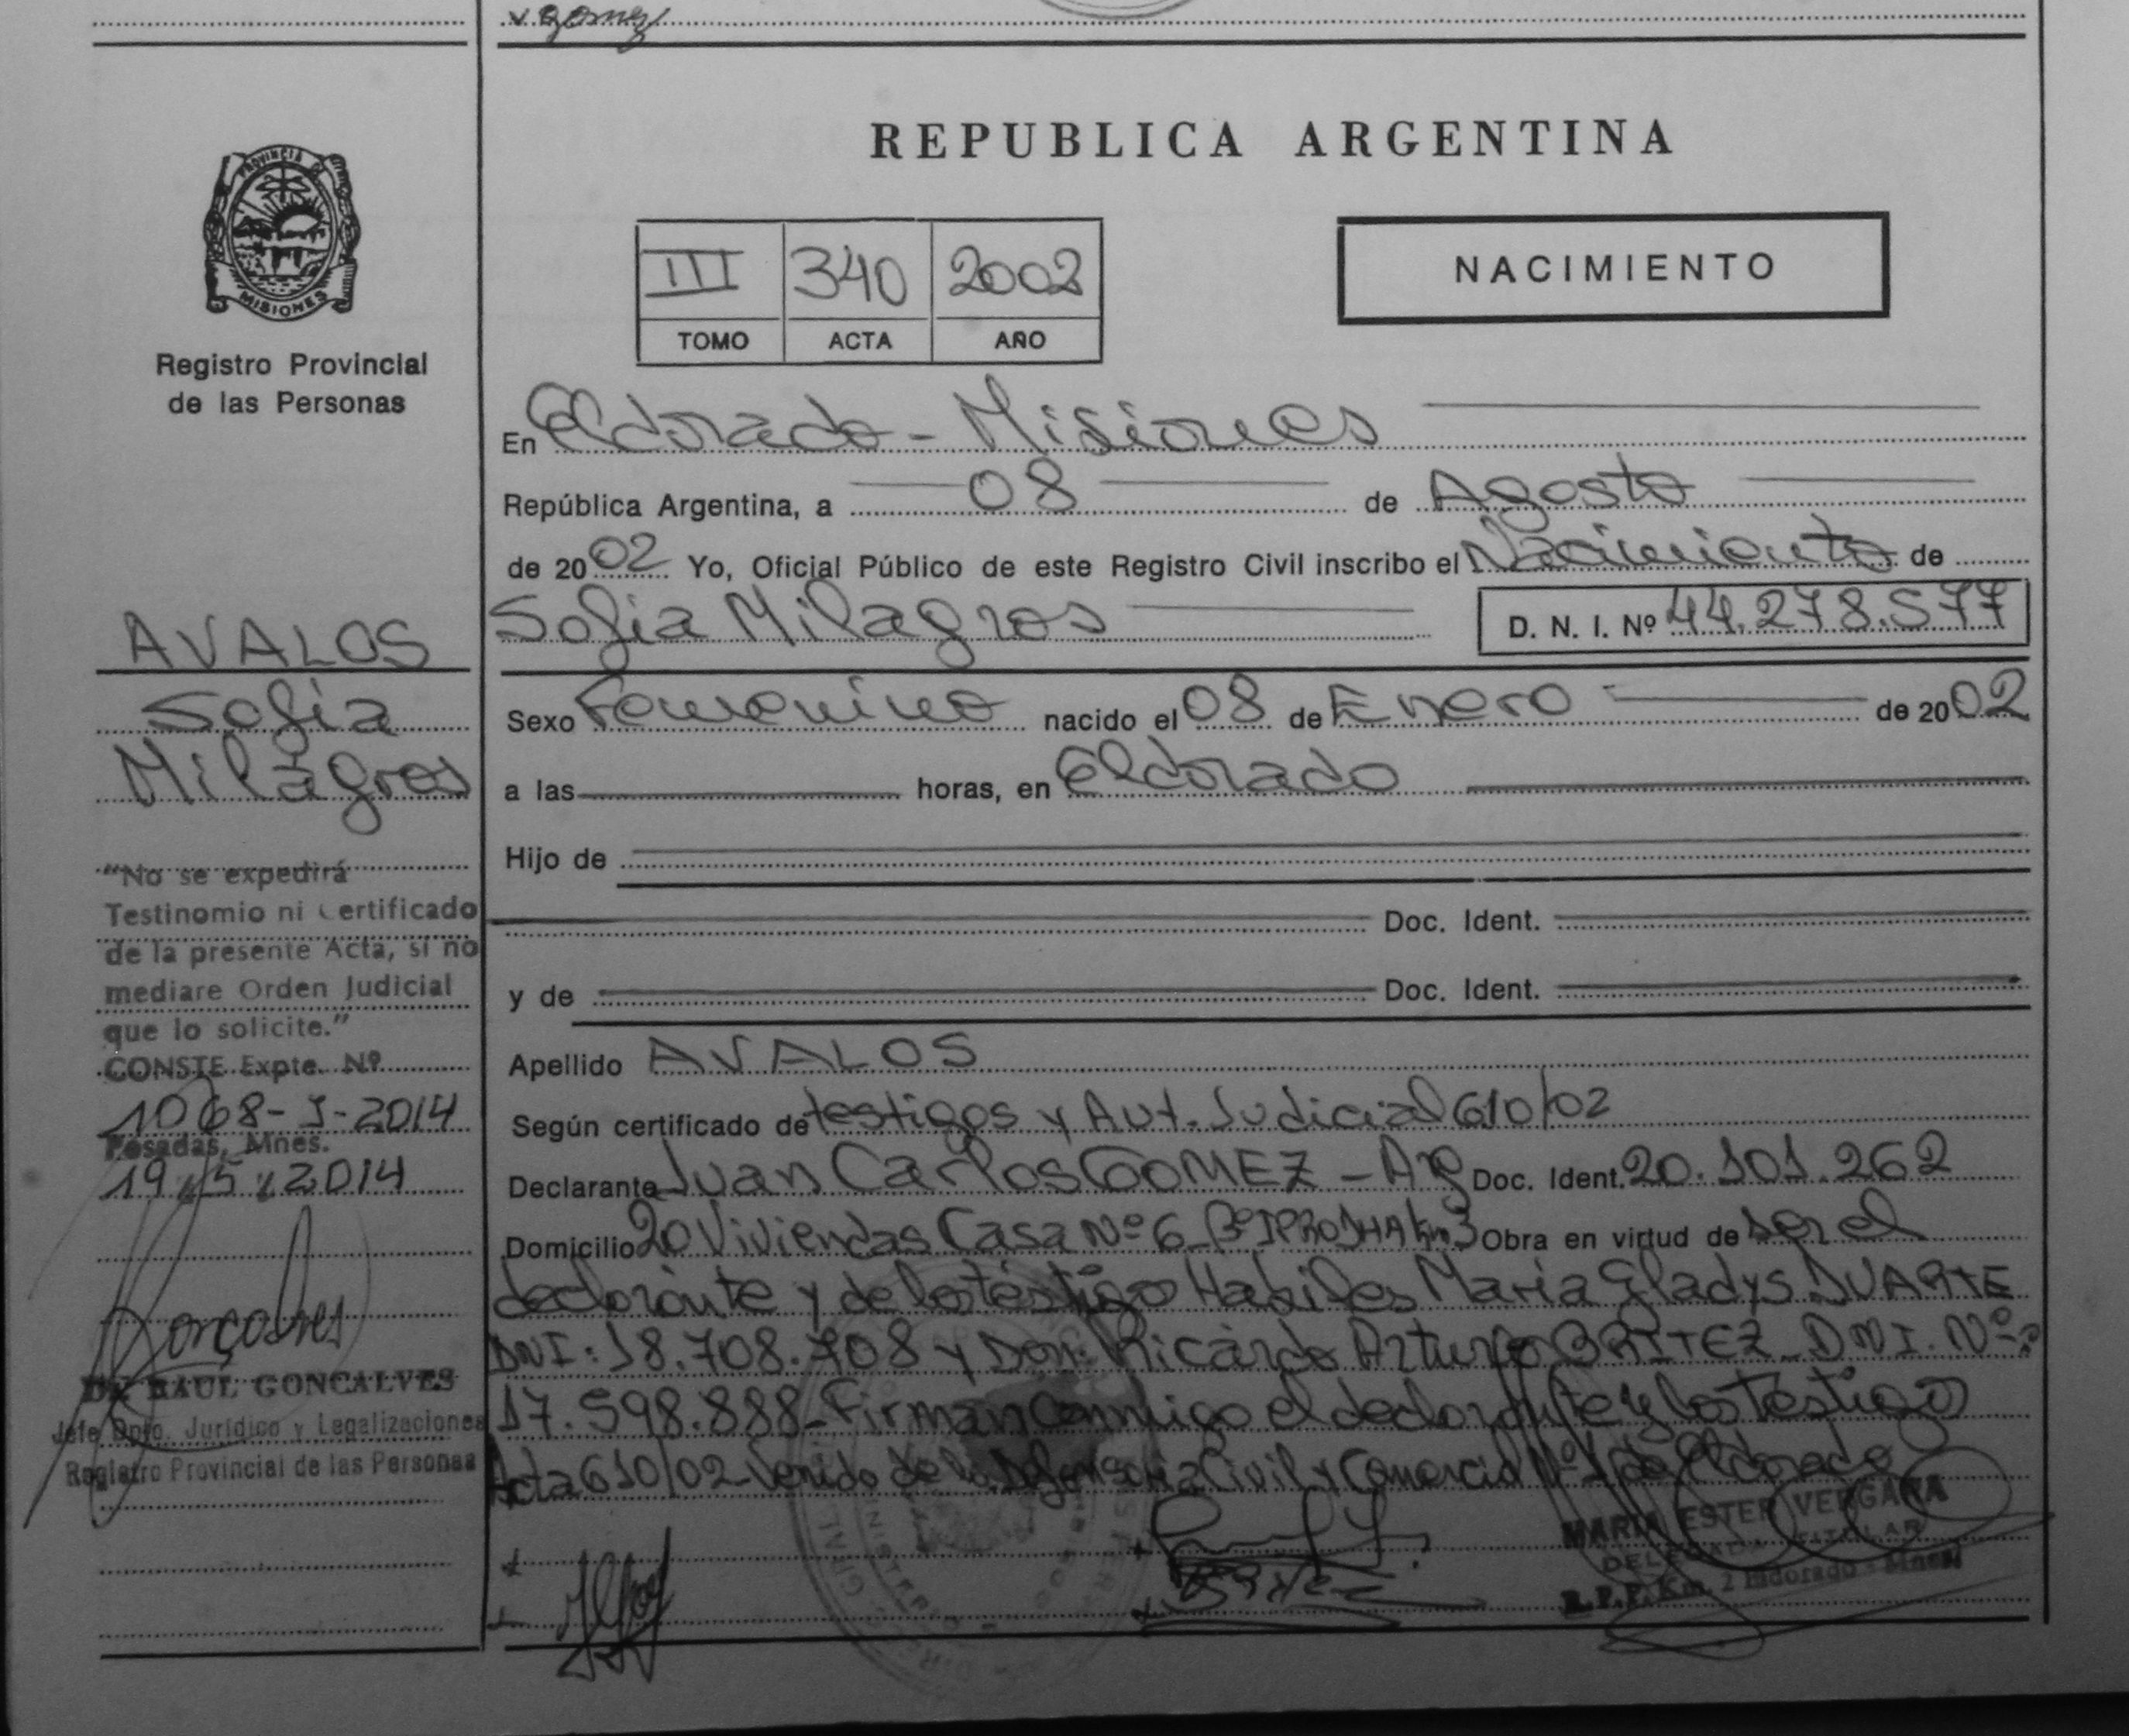 v gomez
PROVINCIA DE
MISIONES
Registro Provincial
de las Personas
AVALOS
Sofia
Milagros
"No se expedirá
Testinomio ni Certificado
de la presente Acta, si no
mediare Orden Judicial
que lo solicite."
CONSTE Expte. Nº
1068-J-2014
Posadas, Mnes.
19 5 2014
Goncalves
Dr. RAUL GONCALVES
Jefe Dpto. Jurídico y Legalizaciones
Registro Provincial de las Personas
REPUBLICA ARGENTINA
III 340 2002
TOMO ACTA AÑO
NACIMIENTO
En Eldorado - Misiones
República Argentina, a 08 de Agosto
de 2002 Yo, Oficial Público de este Registro Civil inscribo el Nacimiento de
Sofia Milagros D. N. I. Nº 44.278.577
Sexo Femenino nacido el 08 de Enero de 2002
a las horas, en Eldorado
Hijo de
Doc. Ident.
y de Doc. Ident.
Apellido AVALOS
Según certificado de testigos y Aut. Judicial 610/02
Declarante Juan Carlos GOMEZ - Arg Doc. Ident. 20.101.262
Domicilio 20 Viviendas Casa Nº 6 Bº Km 3 Obra en virtud de ser el
declarante y de los testigo Habiles Maria Gladys DUARTE
DNI: 18.708.708 y Don: Ricardo Arturo BRITEZ - DNI. Nº
17.598.888 - Firman Conmigo el declarante y los Testigos
Acta 610/02 - Venido de la Defensoria Civil y Comercial Nº 1 de Eldorado
MARIA ESTER VERGARA
DELEGADA TITULAR
R.P.P. Km. 2 Eldorado - Mnes